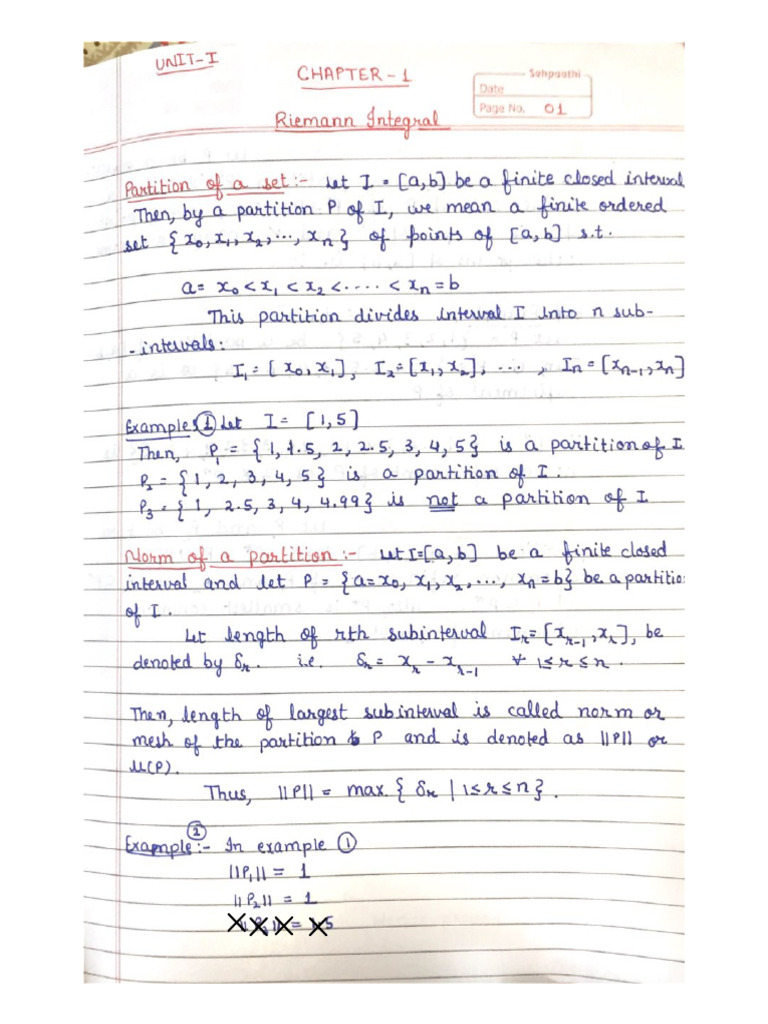 UNIT-I
CHAPTER-1
Sehpaathi
Date
Page No. 01
Riemann Integral
Partition of a set:- Let I = [a,b] be a finite closed interval
Then, by a partition P of I, we mean a finite ordered
set {x₀, x₁, x₂, ..., xₙ} of points of [a,b] s.t.
a = x₀ < x₁ < x₂ < ..... < xₙ = b
This partition divides interval I into n sub-
-intervals:
I₁ = [x₀, x₁], I₂ = [x₁, x₂], ... , Iₙ = [xₙ₋₁, xₙ]
Example: ① Let I = [1,5]
Then, P₁ = {1, 1.5, 2, 2.5, 3, 4, 5} is a partition of I
P₂ = {1, 2, 3, 4, 5} is a partition of I.
P₃ = {1, 2.5, 3, 4, 4.99} is not a partition of I
Norm of a partition :- Let I=[a,b] be a finite closed
interval and let P = {a=x₀, x₁, x₂, ..., xₙ=b} be a partitio
of I.
Let length of rth subinterval Iᵣ = [xᵣ₋₁, xᵣ], be
denoted by δᵣ. i.e. δᵣ = xᵣ - xᵣ₋₁ ∀ 1≤r≤n.
Then, length of largest subinterval is called norm or
mesh of the partition P and is denoted as ||P|| or
μ(P).
Thus, ||P|| = max. {δᵣ | 1≤r≤n}.
Example ②:- In example ①
||P₁|| = 1
||P₂|| = 1